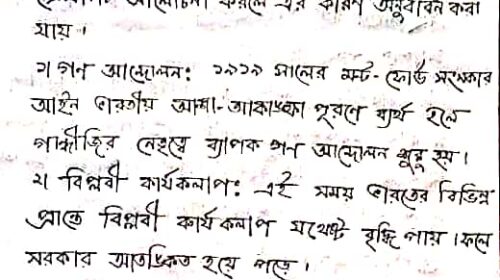 আলোচনা করলে এর কারণ অনুধাবন করা
যায়।
১। গণ আন্দোলন: ১৯১৯ সালের মন্ট-ফোর্ড সংস্কার
আইন ভারতীয় আশা-আকাঙ্ক্ষা পূরণে ব্যর্থ হলে
গান্ধীজির নেতৃত্বে ব্যাপক গণ আন্দোলন শুরু হয়।
২। বিপ্লবী কার্যকলাপ: এই সময় ভারতের বিভিন্ন
প্রান্তে বিপ্লবী কার্যকলাপ যথেষ্ট বৃদ্ধি পায়। ফলে
সরকার আতঙ্কিত হয়ে পড়ে।